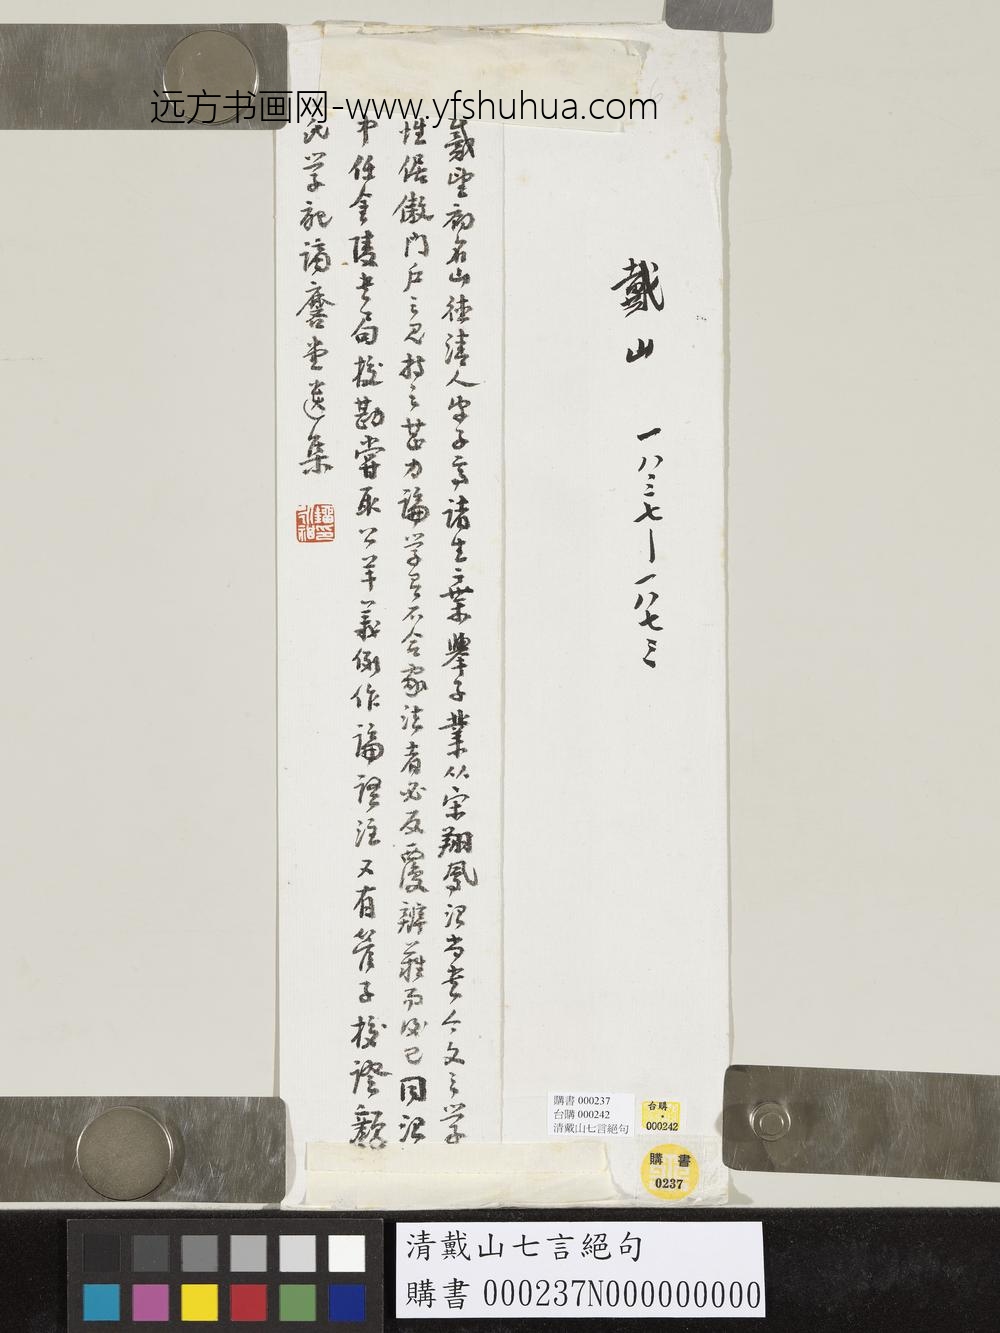 远方书画网-www.yfshuhua.com
戴山 一八三七—一八七三
戴望初名山德清人字子高諸生棄舉子業从宋翔鳳治尚書今文之學
性倨傲門户之見持之甚力論学有不合家法者必反覆辨難而後已同治
中任金陵書局校勘嘗取公羊義例作論語注又有管子校證顏
氏学記謫麐堂遺集
購書 000237
台購 000242
清戴山七言絕句
台購
000242
購書
0237
清戴山七言絕句
購書 000237N000000000